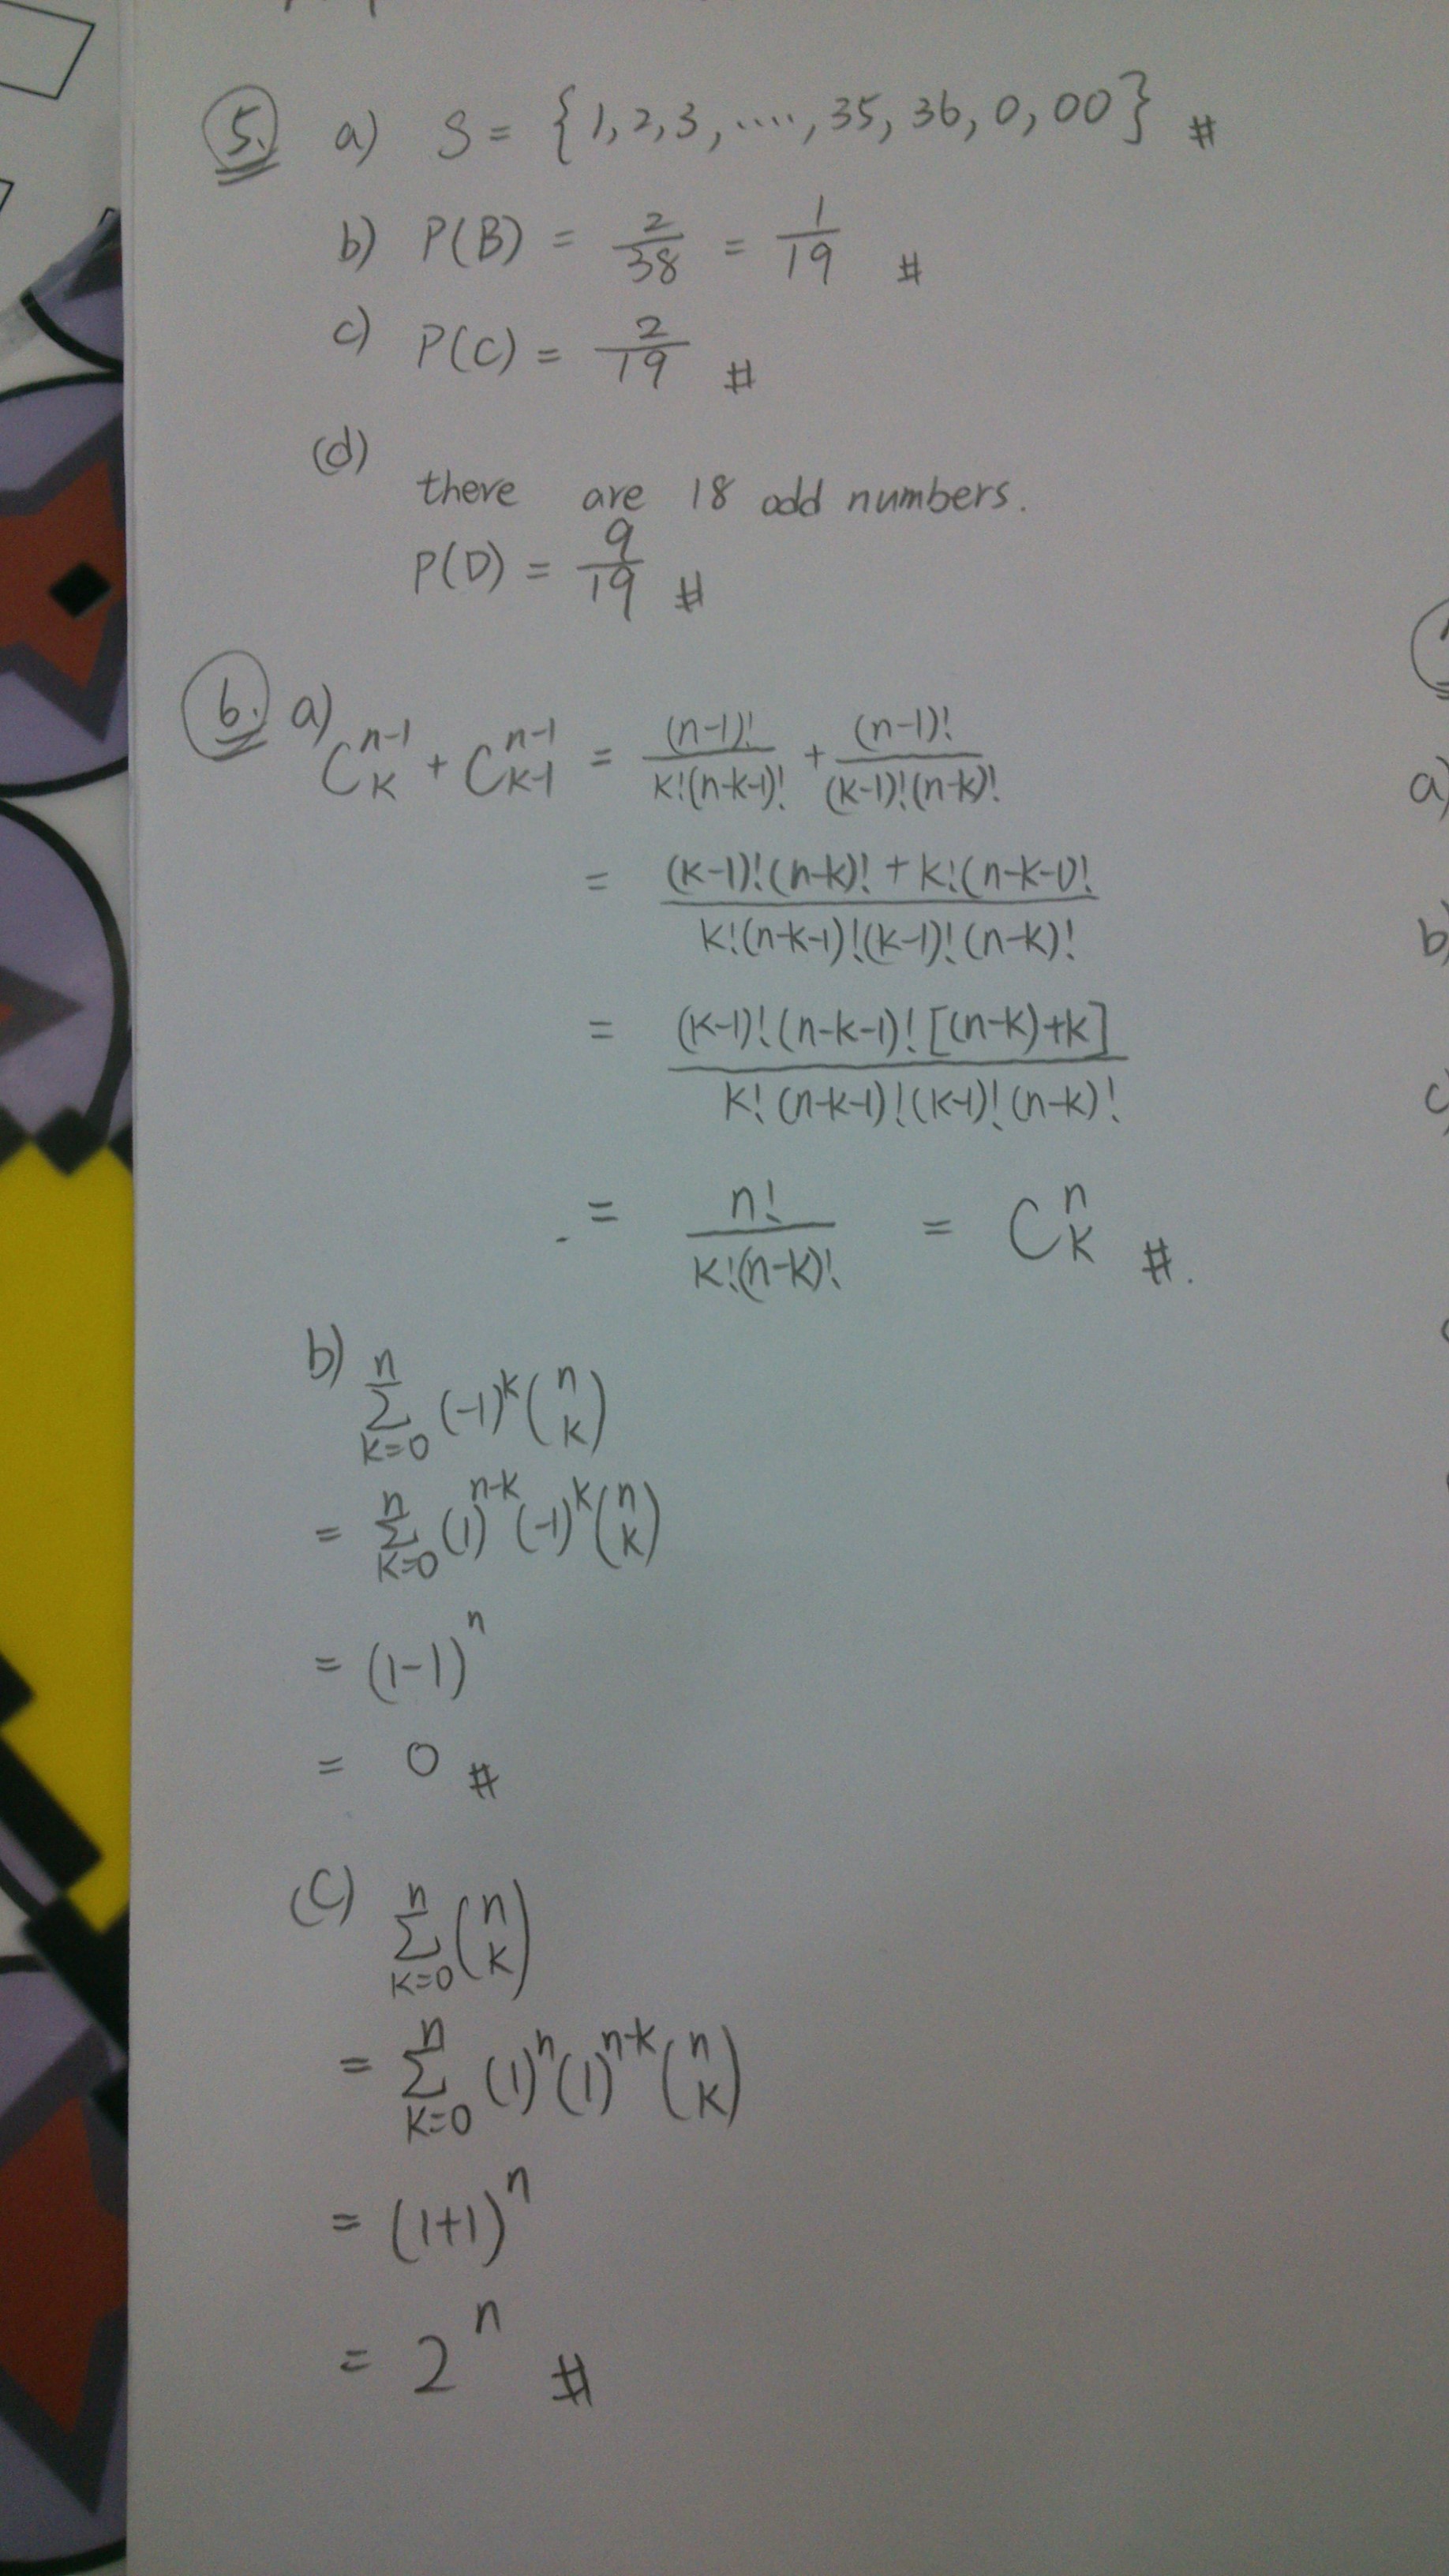 5. a) S = {1, 2, 3, ...., 35, 36, 0, 00} #
b) P(B) = 2/38 = 1/19 #
c) P(C) = 2/19 #
(d)
there are 18 odd numbers.
P(D) = 9/19 #
6. a) C_K^{n-1} + C_{K-1}^{n-1} = (n-1)!/(K!(n-K-1)!) + (n-1)!/((K-1)!(n-K)!)
= ((K-1)!(n-K)! + K!(n-K-1)!)/(K!(n-K-1)!(K-1)!(n-K)!)
= ((K-1)!(n-K-1)![(n-K)+K])/(K!(n-K-1)!(K-1)!(n-K)!)
= n!/(K!(n-K)!) = C_K^n #.
b) Σ_{K=0}^{n} (-1)^K (n K)
= Σ_{K=0}^{n} (1)^{n-K} (-1)^K (n K)
= (1-1)^n
= 0 #
(C) Σ_{K=0}^{n} (n K)
= Σ_{K=0}^{n} (1)^n (1)^{n-K} (n K)
= (1+1)^n
= 2^n #
a)
b)